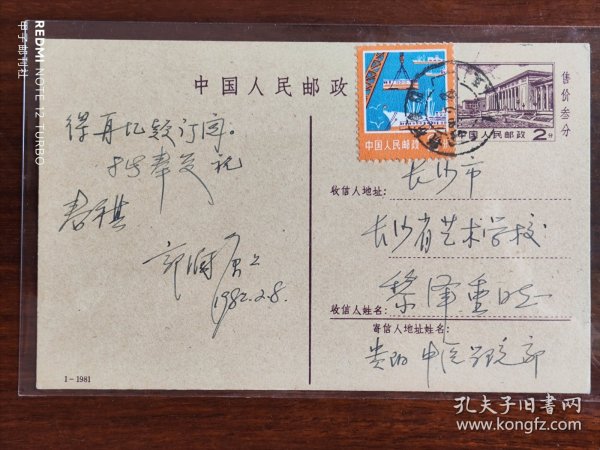 中国人民邮政
售价叁分
中国人民邮政
中国人民邮政 2分
得再忆数订定。
春祺
1982.2.8.
收信人地址:
长沙市
长沙省艺术学校
收信人姓名:
黎泽重
寄信人地址姓名:
贵阳中医学院
1-1981
REDMI NOTE 12 TURBO
甲子邮刊社
孔夫子旧书网
www.kongfz.com